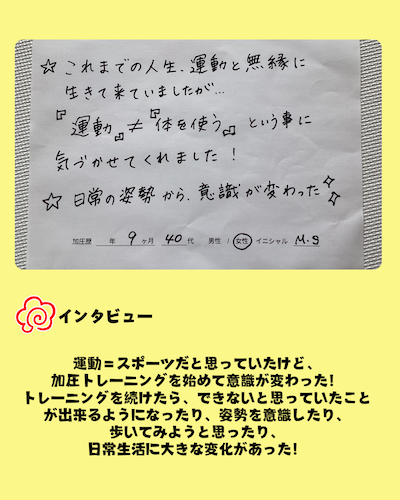 ☆ これまでの人生、運動と無縁に
生きて来ていましたが…
『運動』≠『体を使う』という事に
気づかせてくれました!
☆ 日常の姿勢から、意識が変わった✧
加圧歴 年 9 ヶ月 40 代 男性 / 女性 イニシャル M.S
インタビュー
運動=スポーツだと思っていたけど、
加圧トレーニングを始めて意識が変わった!
トレーニングを続けたら、できないと思っていたこと
が出来るようになったり、姿勢を意識したり、
歩いてみようと思ったり、
日常生活に大きな変化があった!